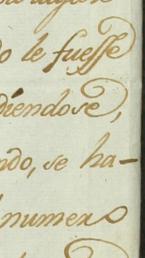 o le fuesse
diendose,
ndo, se ha-
numero